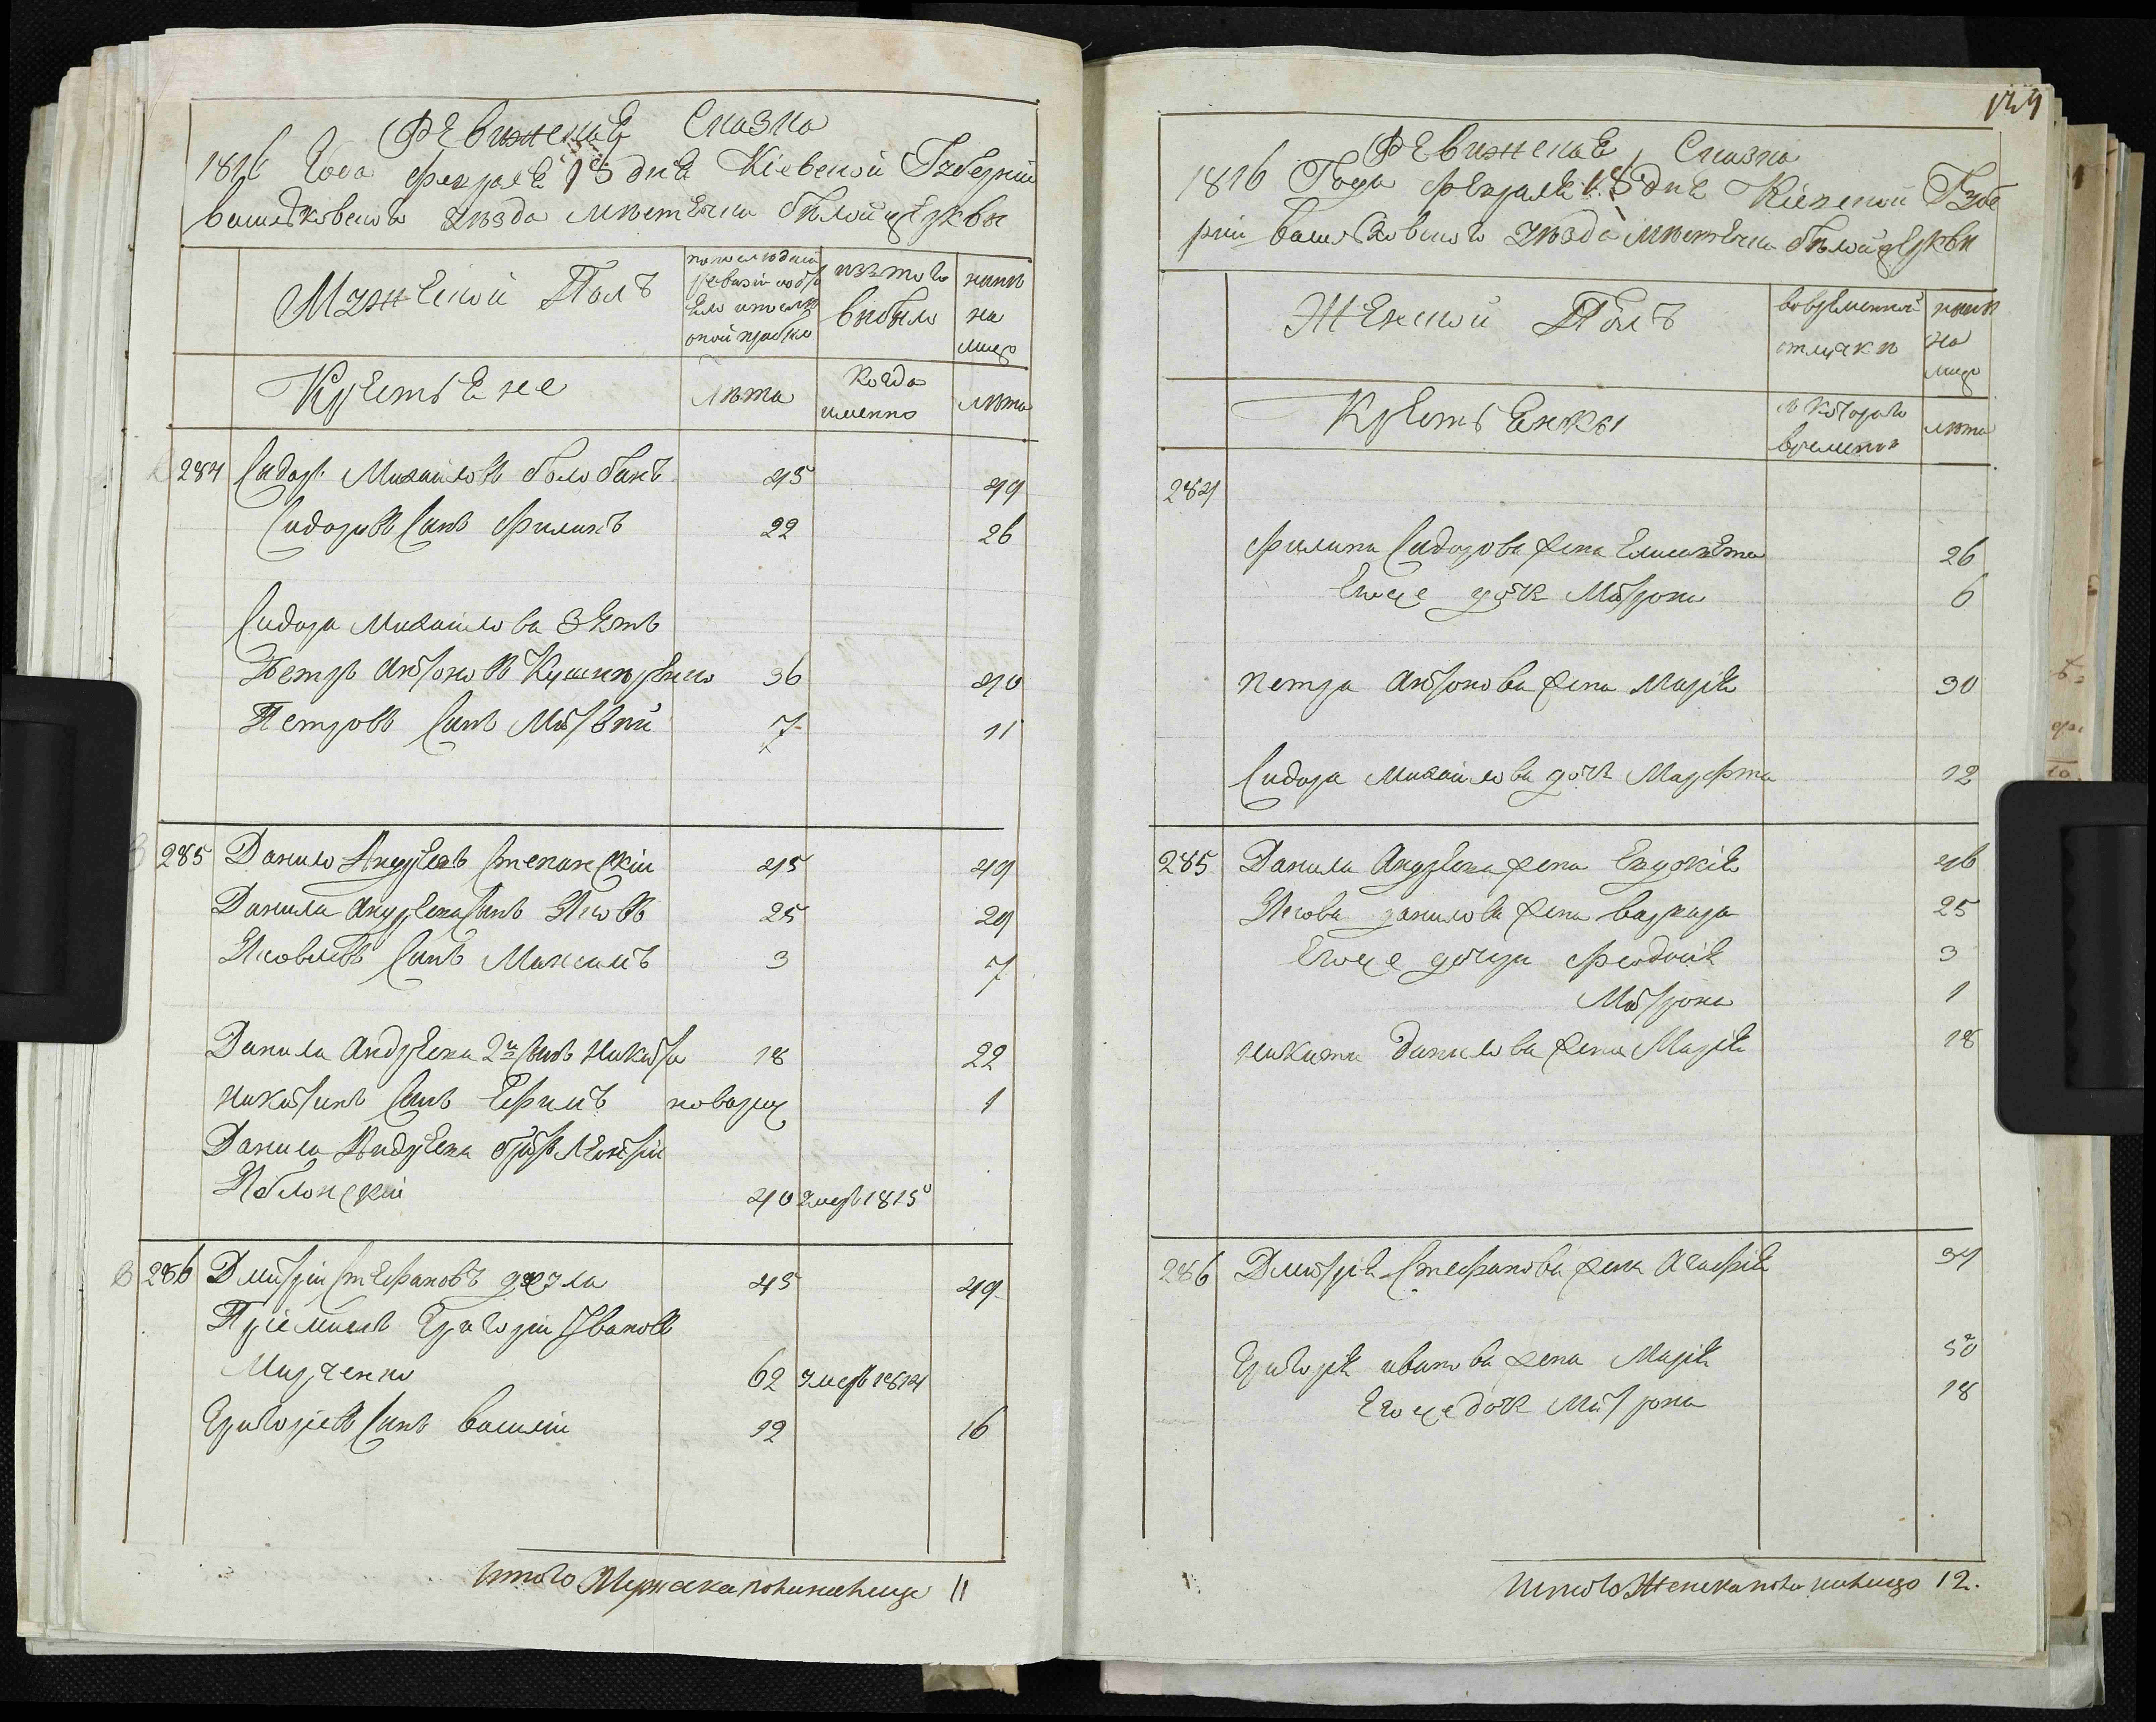 Ревижская Сказка
1816 Года Февраля 18 дня Кіевской Губерніи
Васильковского уезда местечка белой церкви
Мужеской Полъ
по последней ревизіи состояло и после оной прибыло
изъ того выбыло
ныне на лицо
Крестьяне
Лета
когда именно
лета
284 Сидоръ Михайловъ белобакъ 45 49
Сидоровъ Сынъ Филипъ 22 26
Сидора Михайлова Зять
Петръ Антоновъ 36 40
Петровъ Сынъ Матвей 7 11
285 Данило Андреевъ 45 49
Данила Андреева Сынъ Яковъ 25 29
Яковлевъ Сынъ Максимъ 3 7
Данила Андреева 2й Сынъ Никита 18 22
Никитинъ Сынъ Ефимъ новорж 1
Данила Андреева братъ Леонтій
Яблонскій 40 умеръ 1815
286 Дмитрій Стефановъ 45 49
Пріемышъ Григорій Ивановъ
Марченко 62 умеръ 1814
Григоріевъ Сынъ василій 12 16
Итого Мужеска пола налицо 11
129
Ревижская Сказка
1816 Года Февраля 18 дня Кіевской Губе
рніи Васильковского уезда местечка белой церкви
Женской Полъ
во временной отлучке
ныне на лицо
Крестьянки
с которого времени
лета
284
Филипа Сидорова жена Елисавета 26
Егоже дочь Матрона 6
петра Антонова жена Марія 30
Сидора Михайлова дочь Марфта 12
285 Данила Андреева жена Евдокія 46
Якова данилова жена варвара 25
Егоже дочери Феодосія 3
Матрона 1
никити данилова жена Марія 18
286 Дмитрія Стефанова жена Агафія 34
Григорія иванова жена Марія 50
Егоже дочь Матрона 18
Итого Женска пола налицо 12.